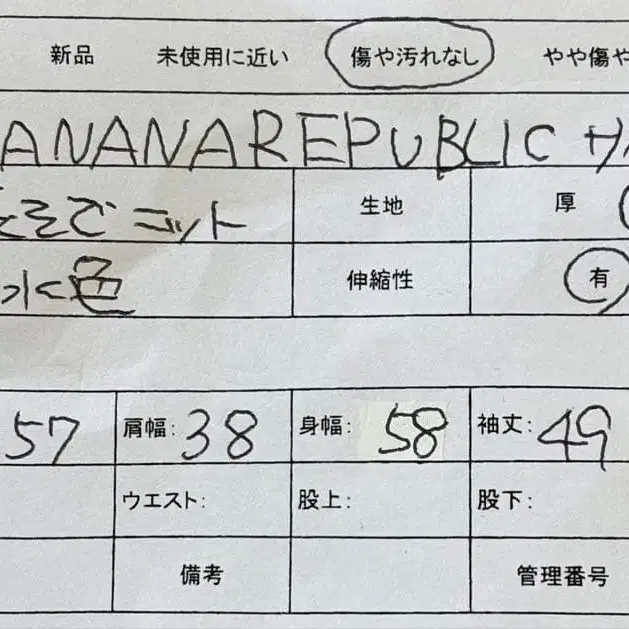 新品 未使用に近い 傷や汚れなし やや傷や
ANANAREPUBLIC サ
そでニット 生地 厚
水色 伸縮性 有
57 肩幅: 38 身幅: 58 袖丈: 49
ウエスト: 股上: 股下:
備考 管理番号